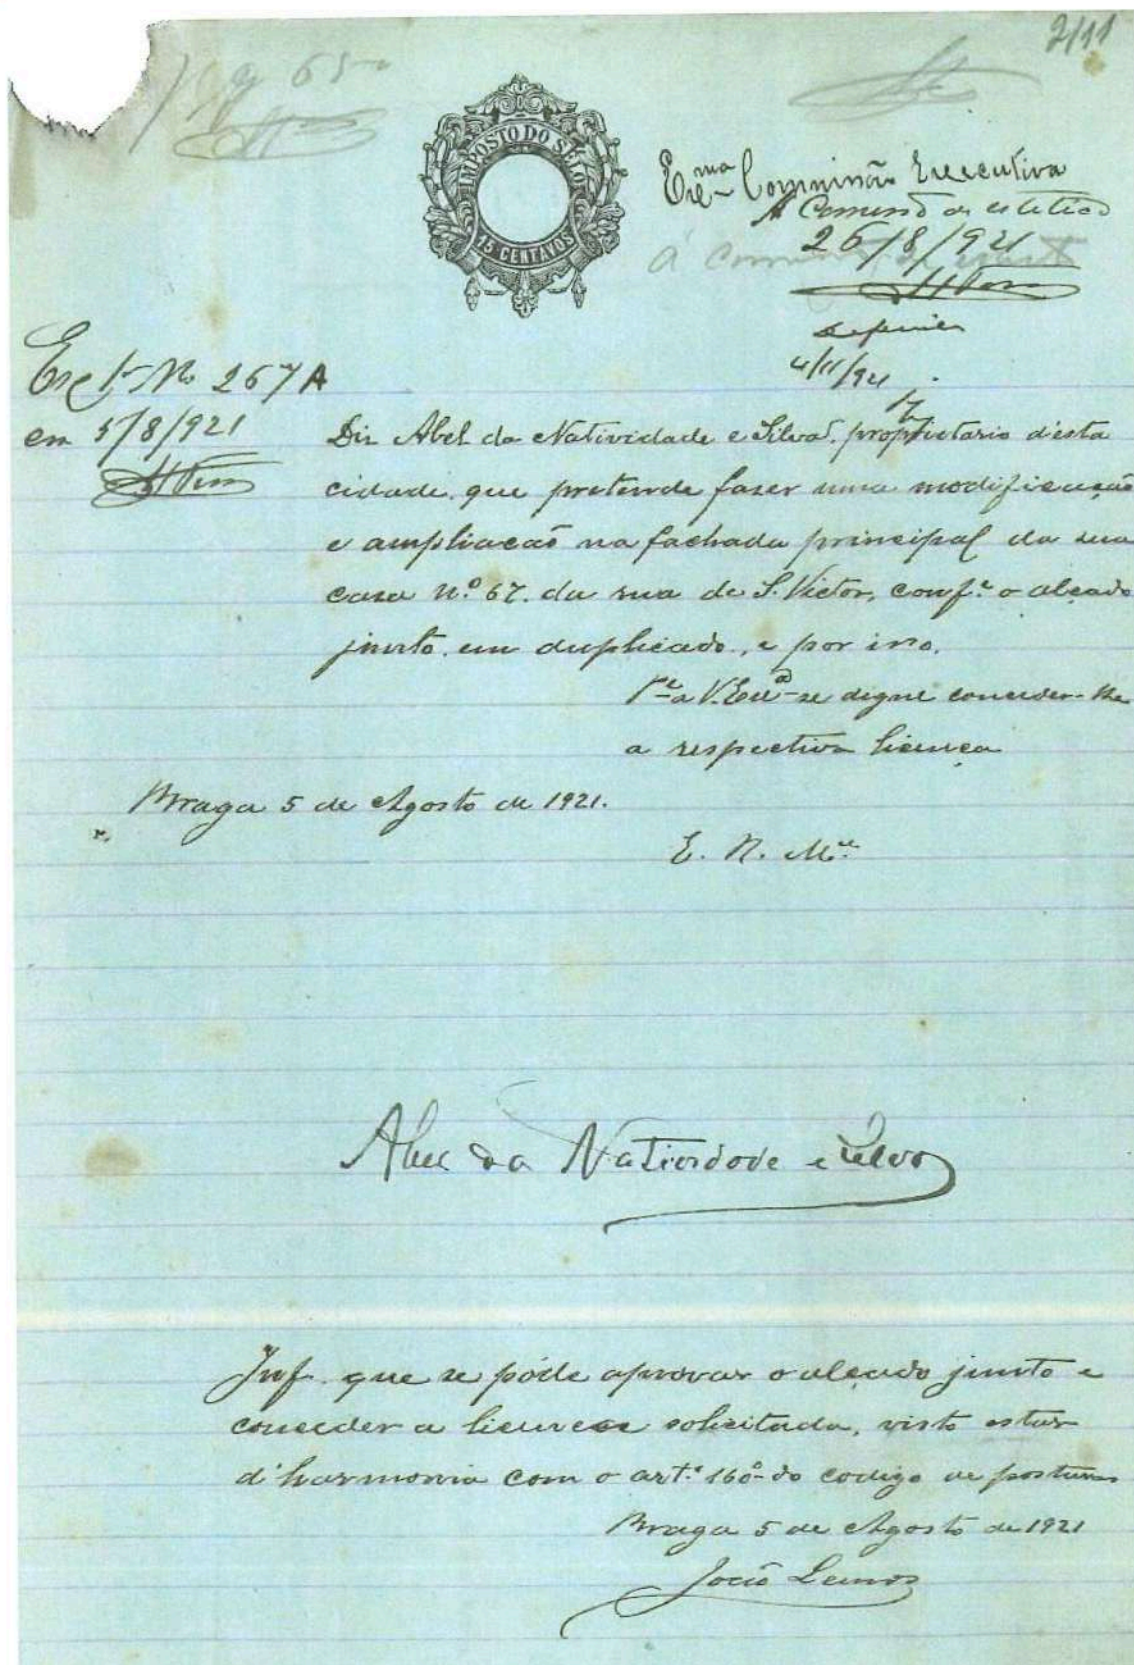 2/11
65
IMPOSTO DO SELO
15 CENTAVOS
Exma Commissão Executiva
A Comissão de estetica
26/8/921
Á
Deferida
4/11/921
Ent. No 267A
em 5/8/921
Diz Abel da Natividade e Silva, proprietario d'esta
cidade, que pretende faser uma modificação
e ampliacaõ na fachada principal da sua
casa n.º 67. da rua de S. Victor, conf.e o alçado
junto em duplicado, e por isso.
Pe a V. Exa se digne conceder-lhe
a respectiva licença
Braga 5 de Agosto de 1921.
E. R. Mce
Abel da Natividade e Silva
Inf. que se póde aprovar o alçado junto e
conceder a licença solicitada, visto estar
d'harmonia com o art.º 160º do codigo de posturas
Braga 5 de Agosto de 1921
João Lemos